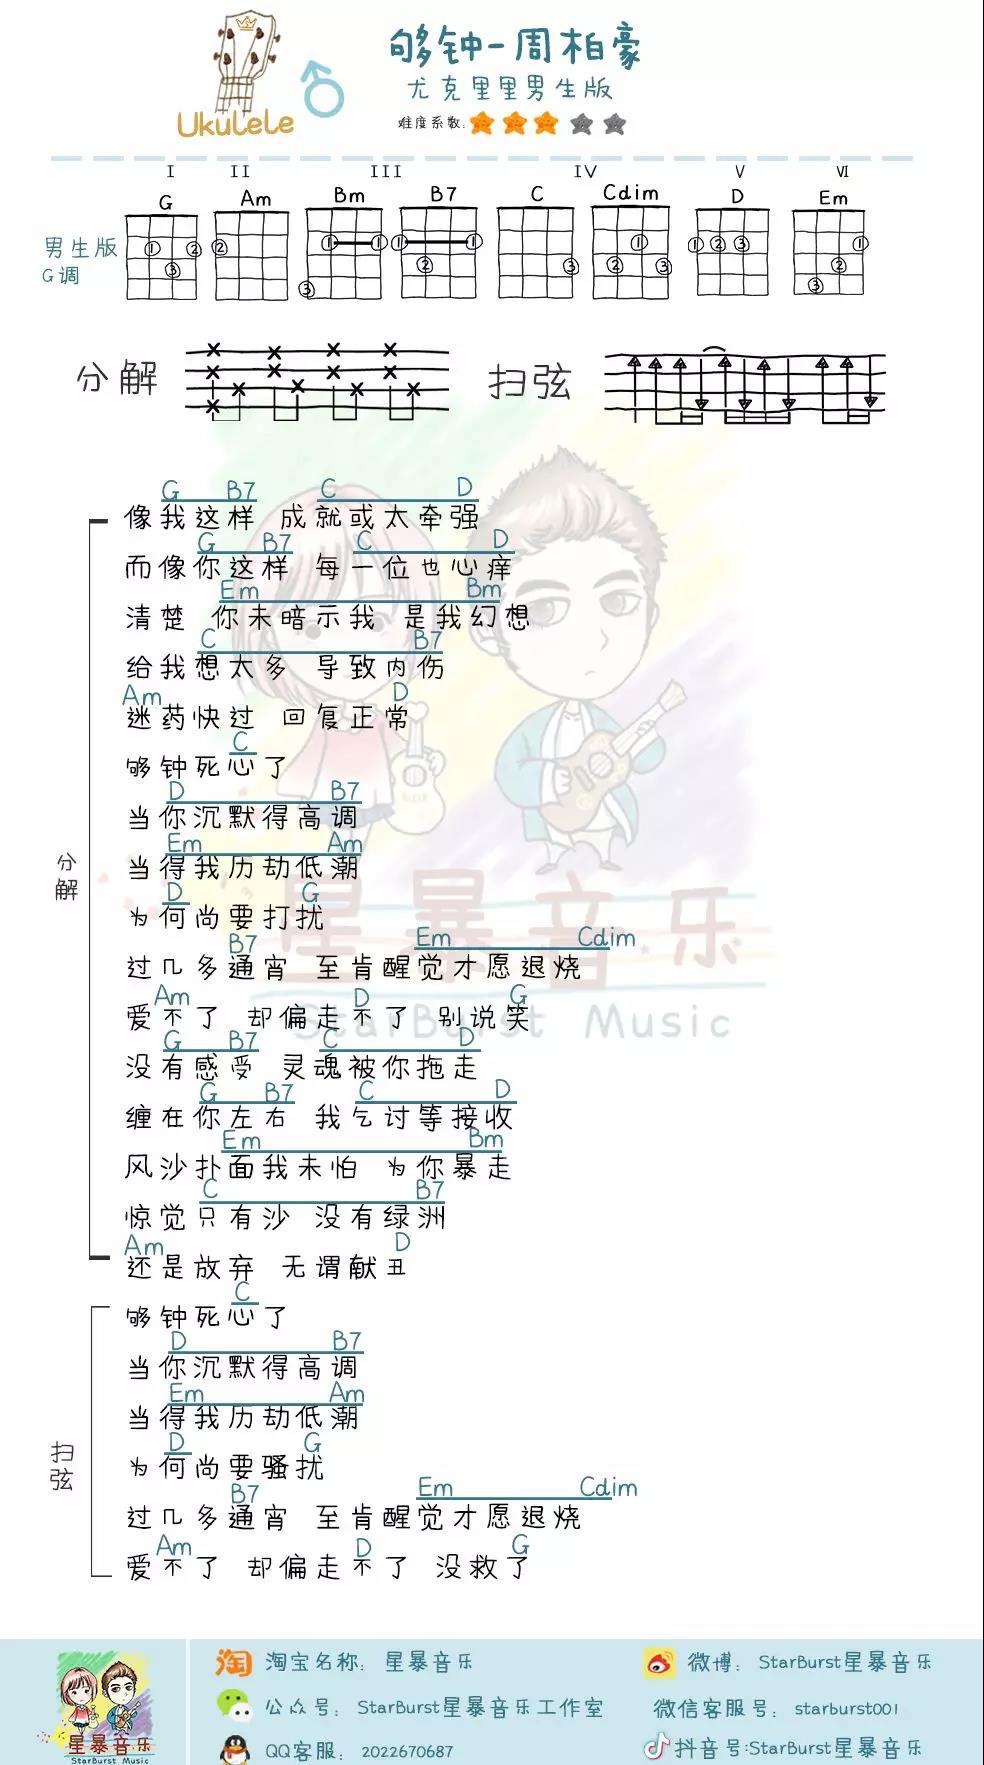 够钟-周柏豪
尤克里里男生版
难度系数:
Ukulele
I II III IV V VI
G Am Bm B7 C Cdim D Em
男生版
G调
分解
扫弦
G B7 C D
像我这样 成就或太牵强
G B7 C D
而像你这样 每一位也心痒
Em Bm
清楚 你未暗示我 是我幻想
C B7
给我想太多 导致内伤
Am D
迷药快过 回复正常
C
够钟死心了
D B7
当你沉默得高调
Em Am
当得我历劫低潮
D G
为何尚要打扰
B7 Em Cdim
过几多通宵 至肯醒觉才愿退烧
Am D G
爱不了 却偏走不了 别说笑
G B7 C D
没有感受 灵魂被你拖走
G B7 C D
缠在你左右 我乞讨等接收
Em Bm
风沙扑面我未怕 为你暴走
C B7
惊觉只有沙 没有绿洲
Am D
还是放弃 无谓献丑
分解
C
够钟死心了
D B7
当你沉默得高调
Em Am
当得我历劫低潮
D G
为何尚要骚扰
B7 Em Cdim
过几多通宵 至肯醒觉才愿退烧
Am D G
爱不了 却偏走不了 没救了
扫弦
星暴音乐
StarBurst Music
淘 淘宝名称: 星暴音乐
微博: StarBurst星暴音乐
公众号: StarBurst星暴音乐工作室
微信客服号: starburst001
QQ客服: 2022670687
抖音号:StarBurst星暴音乐
星暴音乐
StarBurst Music